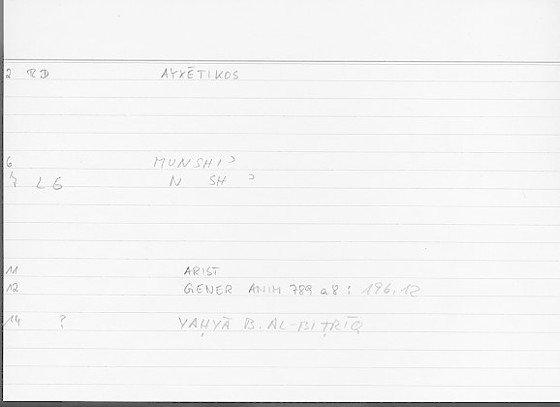 2 RD AYXĒTIKOS
6 MUNSHIʾ
7 LG N SH ʾ
11 ARIST
12 GENER ANIM 789 a8 : 196,12
14 ? YAḤYĀ B. AL-BIṬRĪQ